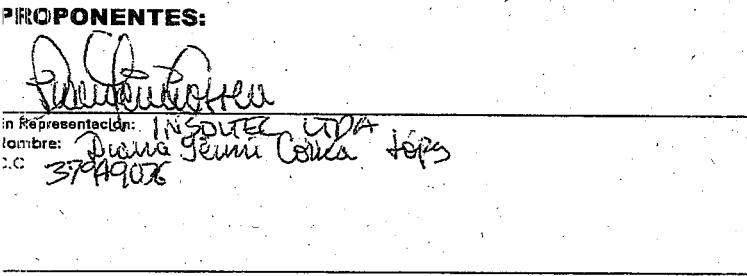 PROPONENTES:
En Representación: INSOLTEC LTDA
Nombre: Diana Yenni Correa López
C.C 37949036